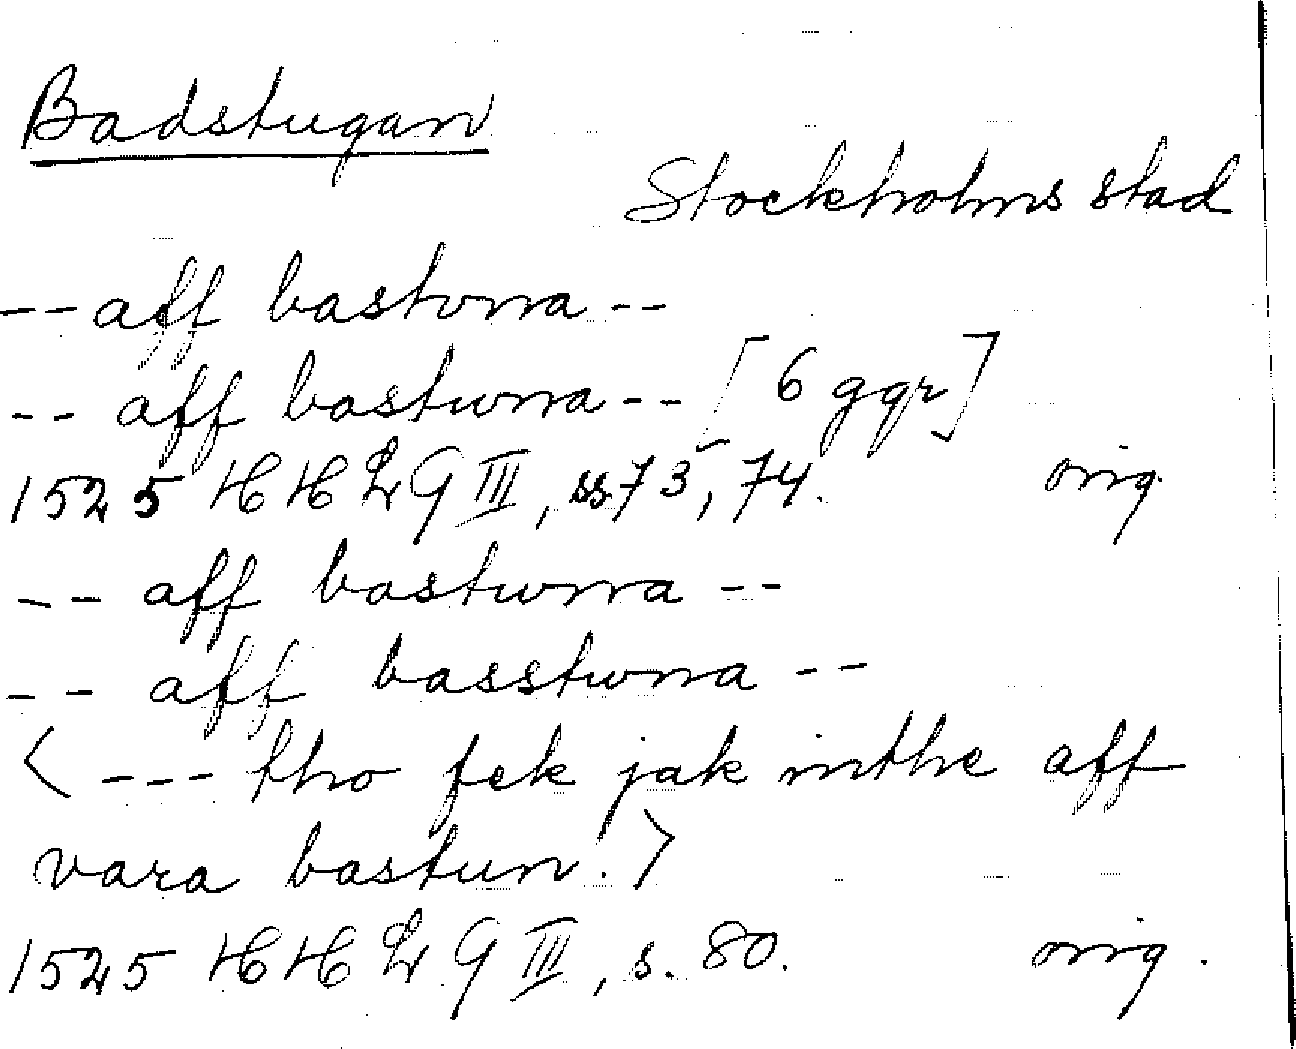 Badstugan
Stockholms stad
-- aff bastvnra --
-- aff bastwnra -- [6 ggr]
1525 HHLG III, ss. 73, 74. orig.
-- aff bastwnra --
-- aff basstwnra --
< --- tho fek jak inthe aff
vara bastun. >
1525 HHLG III, s. 80. orig.